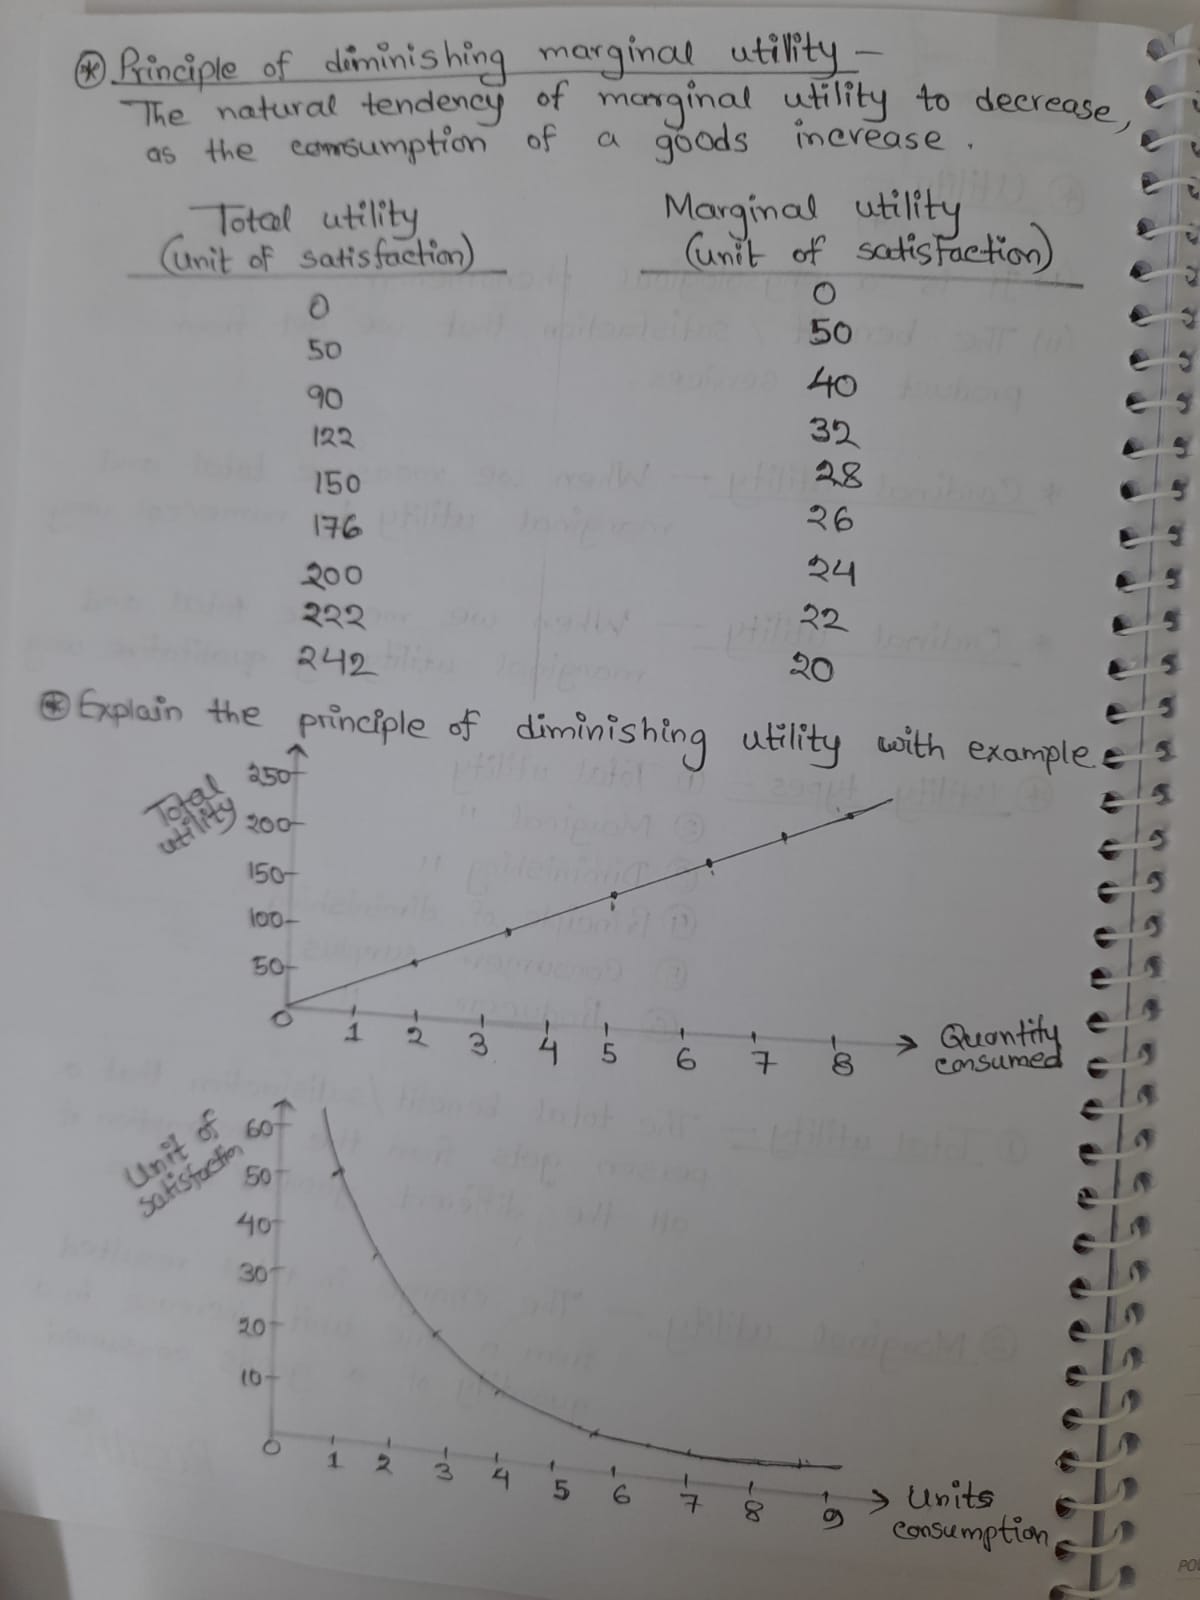 * Principle of diminishing marginal utility —
The natural tendency of marginal utility to decrease,
as the comsumption of a goods increase.
Total utility
(unit of satisfaction)
Marginal utility
(unit of satisfaction)
0 0
50 50
90 40
122 32
150 28
176 26
200 24
222 22
242 20
* Explain the principle of diminishing utility with example.
Total
utility
250
200
150
100
50
0 1 2 3 4 5 6 7 8
Quantity
consumed
Unit of
satisfaction
60
50
40
30
20
10
0 1 2 3 4 5 6 7 8 9
Units
consumption